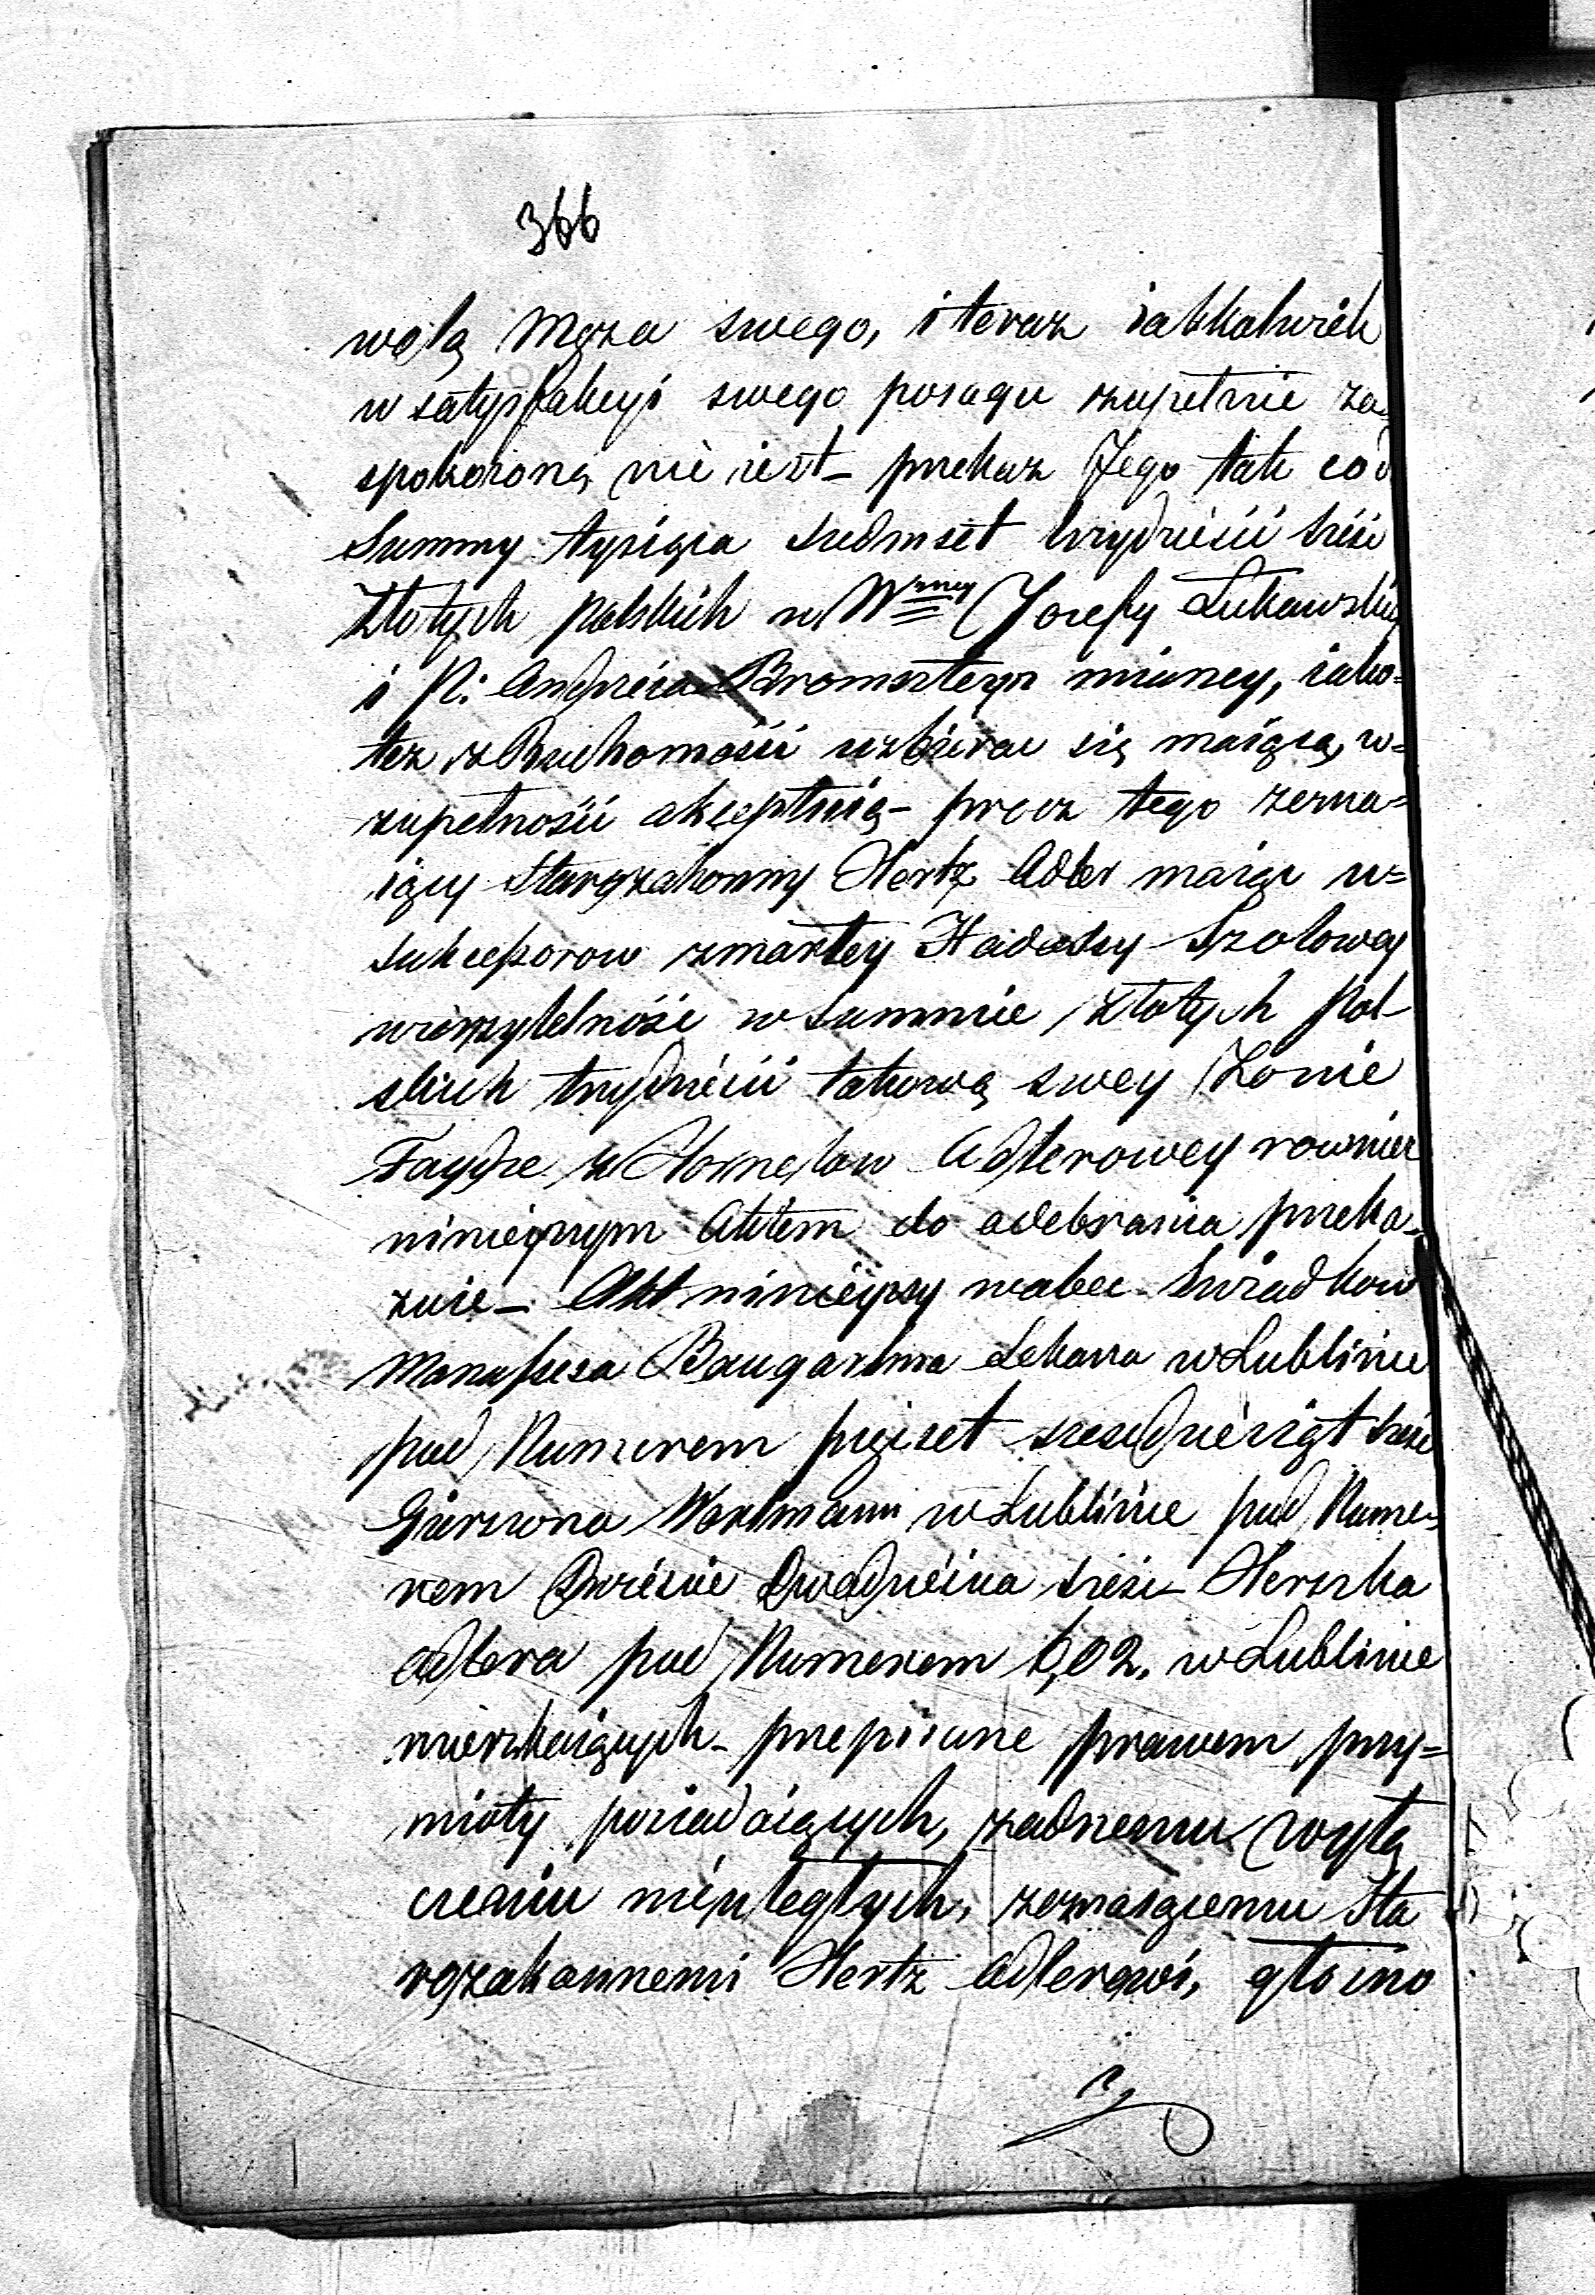 366
wolą Męza swego, i teraz iakkolwiek
w satysfakcyi swego posagu zupełnie za
spokoioną nie iest – przekaz Jego tak co do
Summy tysiąca siedmset trzydzieści sześć
Złotych Polskich u Wney Jozefy Łukawskiey
i P. Andrzeia Bromszteyn mianey, iako=
tez z Ruchomości uzbierac się maiącą, w=
zupełności akceptuią – procz tego zezna=
iący Starozakonny Hertz Adler maiąc u=
sukcessorow zmarłey Hadessy Szolowey
wierzytelność w Summie Złotych Pol-
skich trzydzieści takową swey Zonie
Faydze z Adlerowey rownież
ninieyszym Aktem do odebrania przeka-
zuie – Akt ninieyszy wobec Swiadkow
Manassesa Baugartena Lekarza w Lublinie
pod Numerem pięcset szescdziesiąt sześć
Gierszona Wortmann w Lublinie pod Nume-
rem Dwieście Dwadzieścia sześć – Herszka
Adlera pod Numerem 602. w Lublinie
mieszkaiących – przepisane prawem przy=
mioty posiadaiących, zadnemu wyłą
czeniu nieuległych, zeznaiącemu Sta
rozakonnemu Hertz Adlerowi, głosno